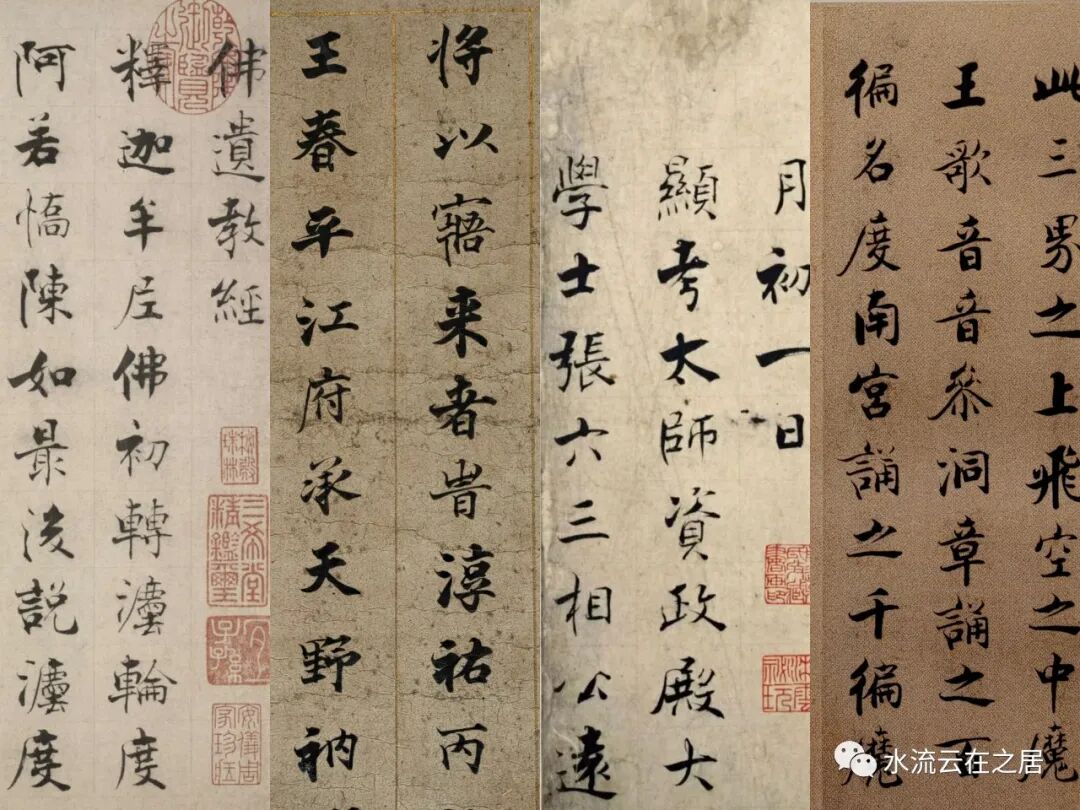 佛遺教經
釋迦牟尼佛初轉灋輪度
阿若憍陳如最後說灋度
三希堂精鑑璽
宜子孫
將以寤来者旹淳祐丙
王春平江府承天野衲
月初一日
顯考太師資政殿大
學士張六三相公遠
此三界之上飛空之中魔
王歌音音叅洞章誦之百
徧名度南宮誦之千徧魔
水流云在之居